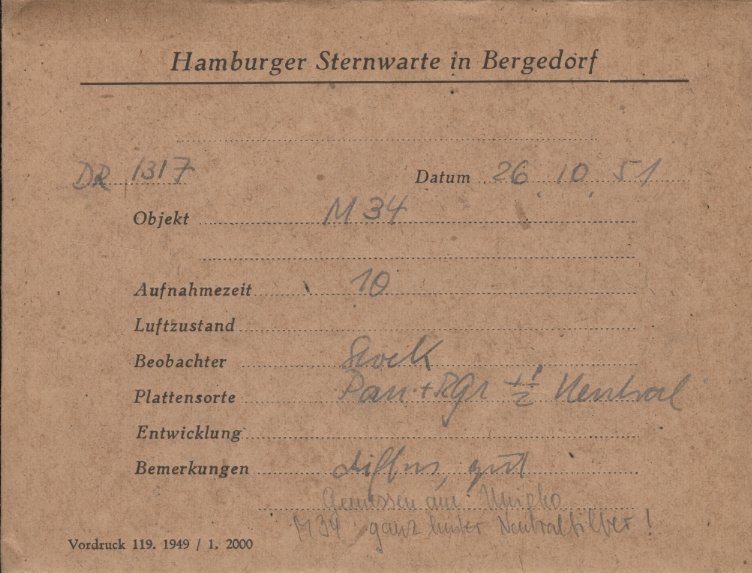 Hamburger Sternwarte in Bergedorf
DR 1317 Datum 26 10 51
Objekt M 34
Aufnahmezeit 10
Luftzustand
Beobachter Stock
Plattensorte Pan + + 1/2 Neutral
Entwicklung
Bemerkungen diffus, gut
Gemessen am
M34 ganz hinter Neutralfilter!
Vordruck 119. 1949 / 1. 2000